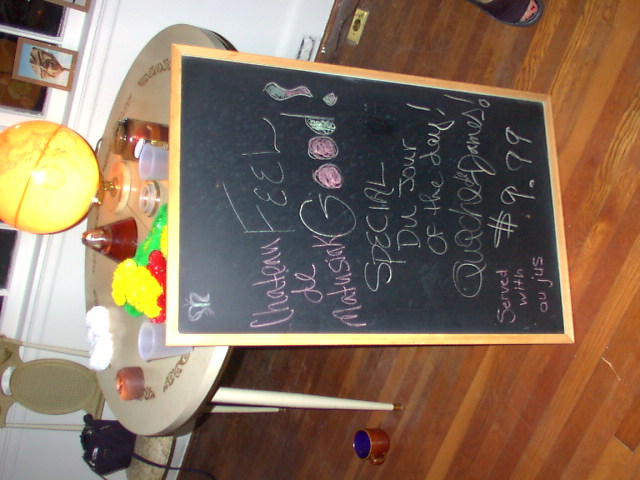 Chateau FEEL
de
Matusiak GOOD!
SPECIAL
Du Jour
of the day!
$9.99
Served
with
au jus